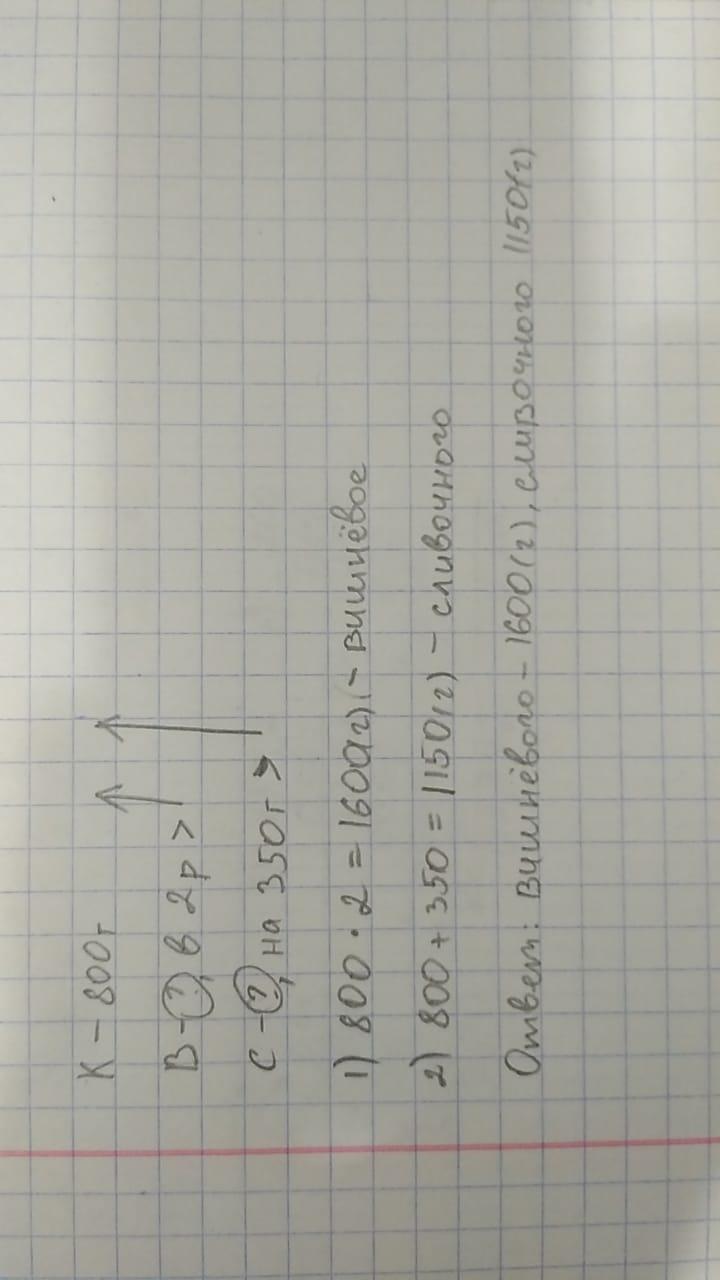 К - 800г
В - ?, в 2р >
С - ?, на 350г >
1) 800 · 2 = 1600(г) - вишнёвое
2) 800 + 350 = 1150(г) - сливочного
Ответ: вишнёвого - 1600(г), сливочного 1150(г)